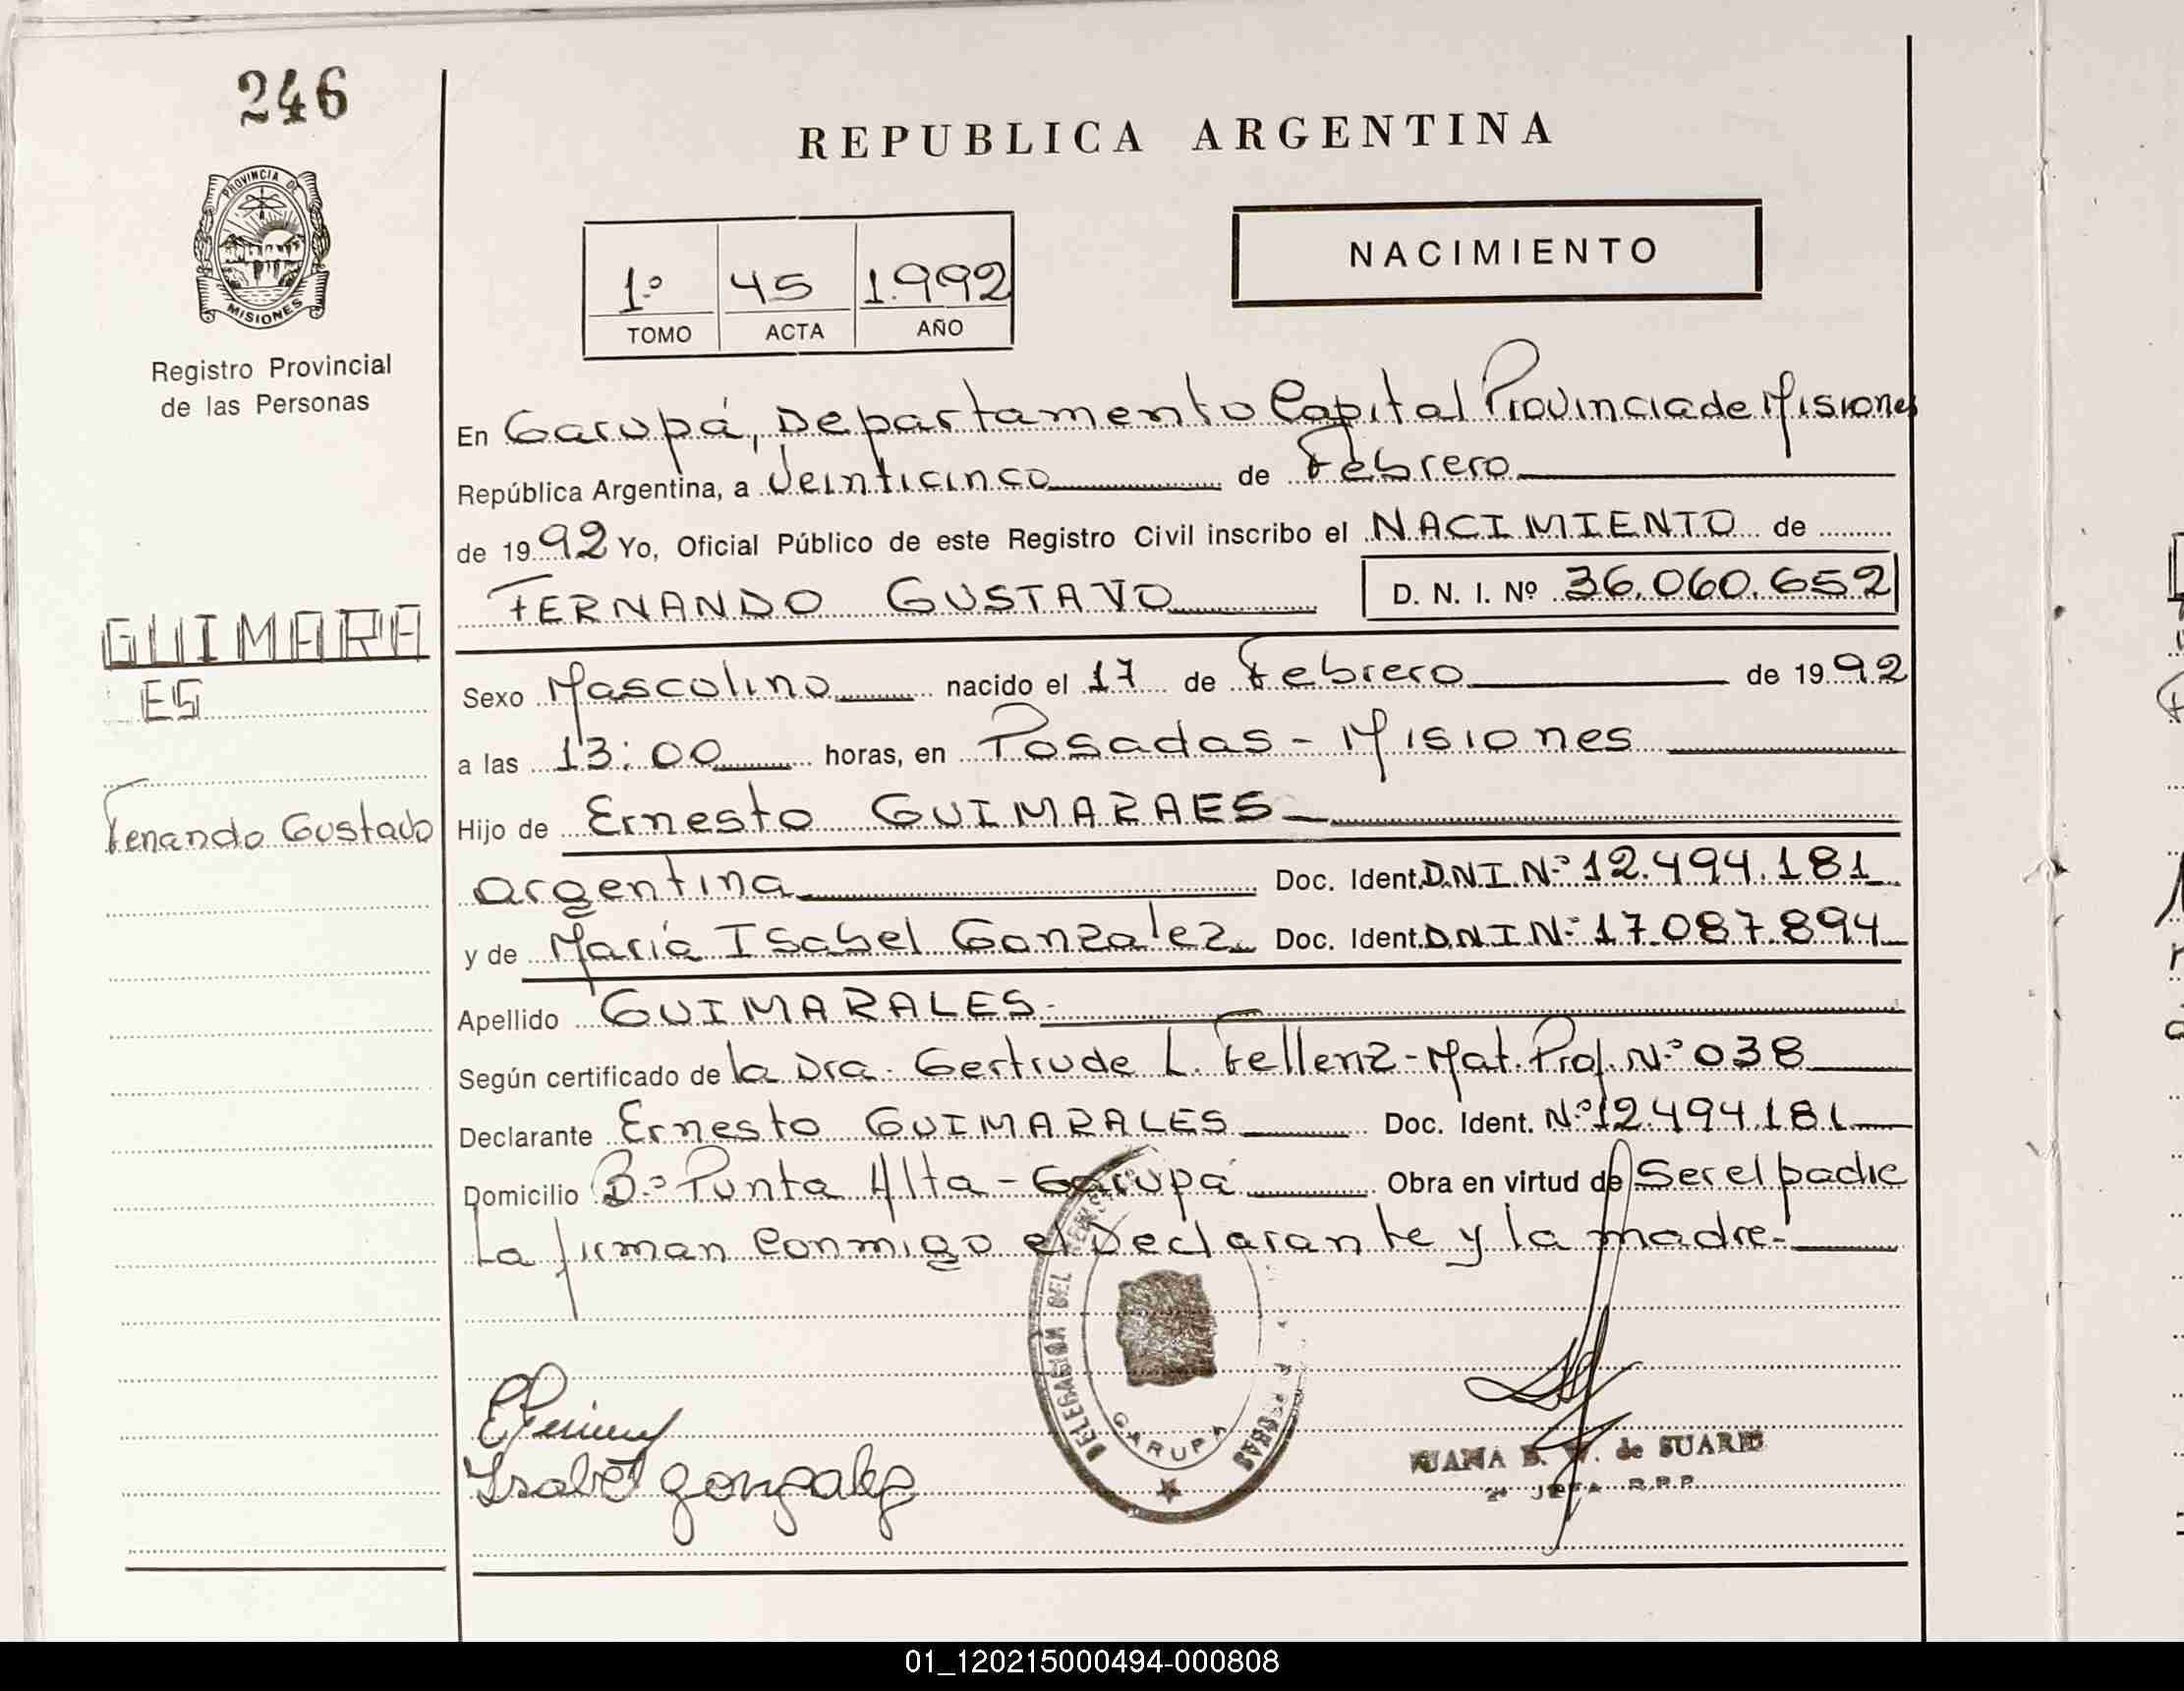 246
REPUBLICA ARGENTINA
PROVINCIA DE
MISIONES
Registro Provincial
de las Personas
1º 45 1.992
TOMO ACTA AÑO
NACIMIENTO
En Garupá, Departamento Capital Provincia de Misiones
República Argentina, a Veinticinco de Febrero
de 1992 Yo, Oficial Público de este Registro Civil inscribo el NACIMIENTO de
FERNANDO GUSTAVO D. N. I. Nº 36.060.652
GUIMARA
ES
Fenando Gustavo
Sexo Mascolino nacido el 17 de Febrero de 1992
a las 13:00 horas, en Posadas - Misiones
Hijo de Ernesto GUIMARAES
argentina Doc. Ident. DNI.Nº 12.494.181
y de María Isabel Gonzalez Doc. Ident. DNI Nº 17.087.894
Apellido GUIMARALES.
Según certificado de la Dra. Gertrude L. Fellenz - Mat. Prof. Nº 038
Declarante Ernesto GUIMARALES Doc. Ident. Nº 12.494.181
Domicilio Bº Punta Alta - Garupá Obra en virtud de Ser el padre
La firman conmigo el Declarante y la madre.
DELEGACION DEL
GARUPA
Isabel gonzalez
JUANA B. de SUAREZ
2ª JEFA R.P.P.
01_120215000494-000808